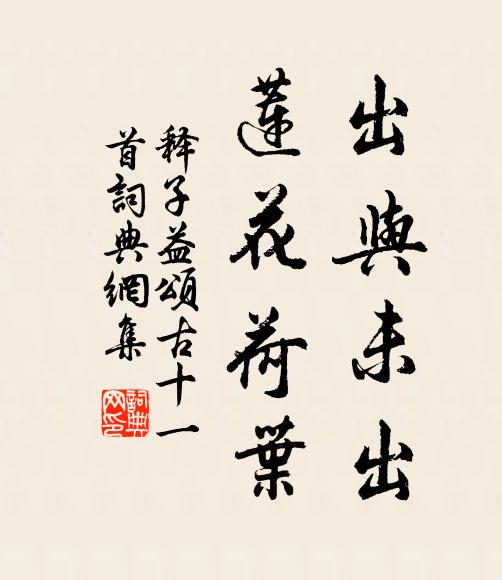 出與未出
蓮花荷葉
释子益頌古十一
首詞典網集
詞典
网印